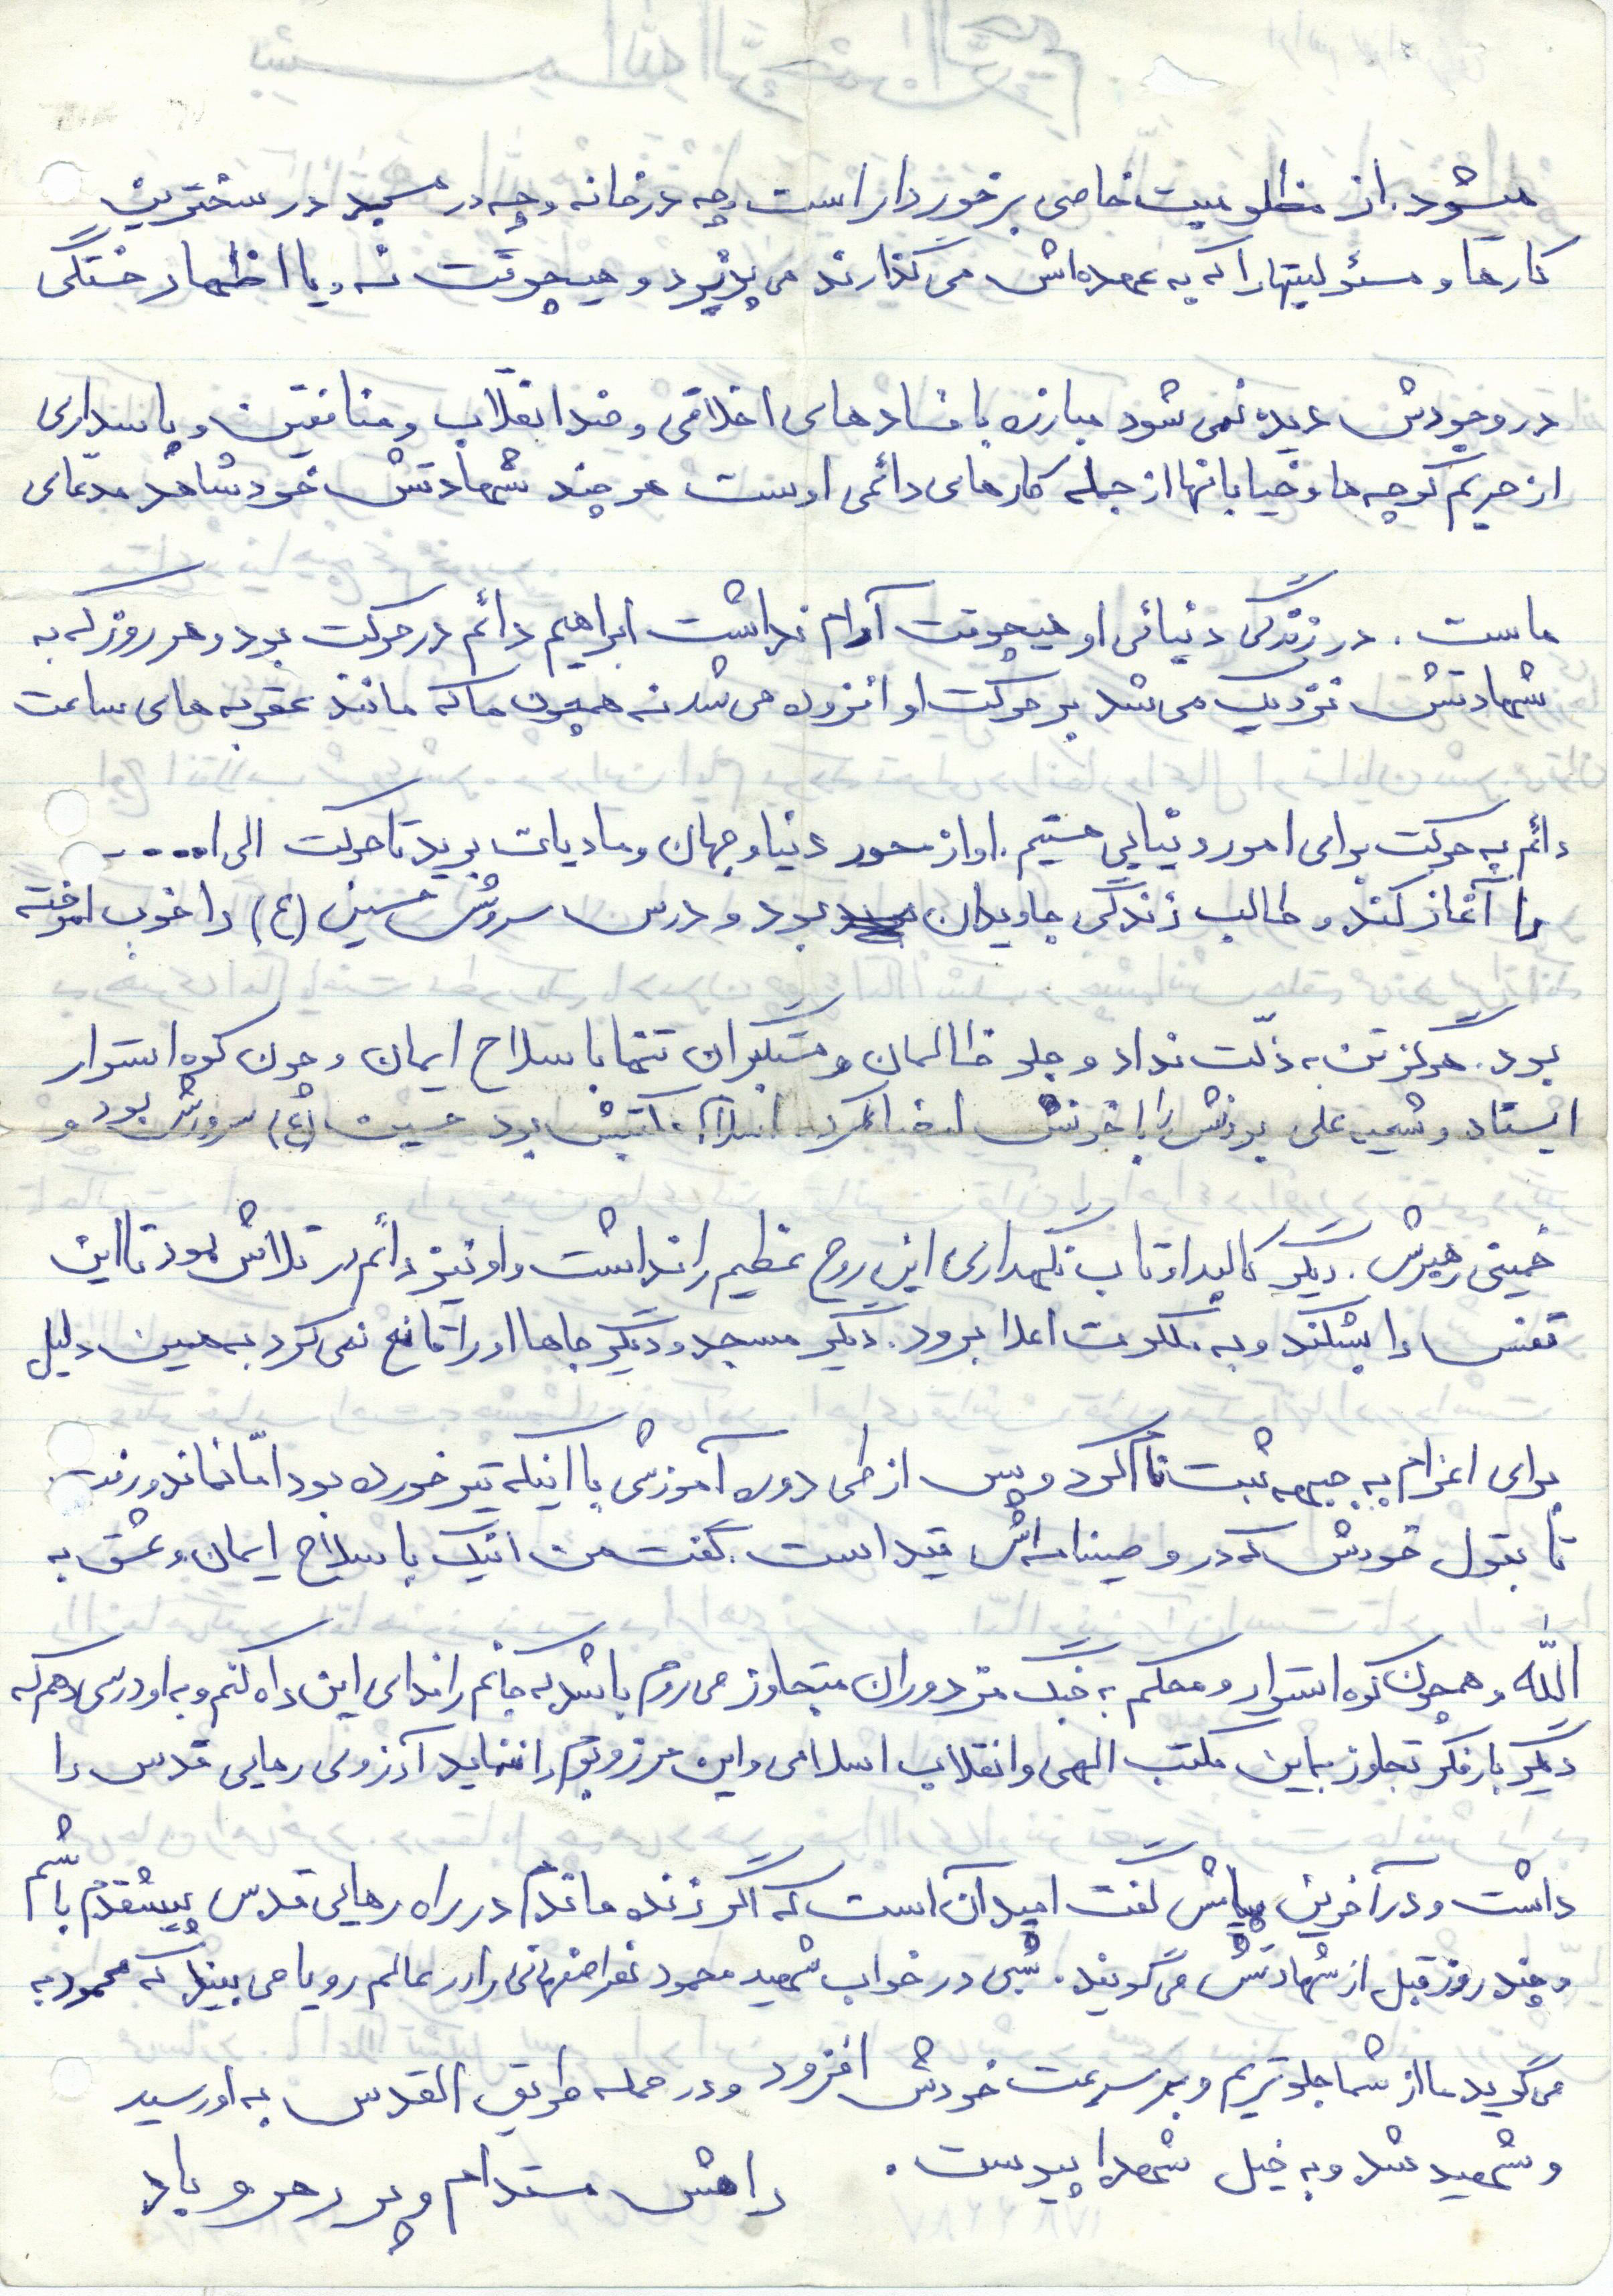 میشود. از مظلومیت خاصی برخوردار است چه در خانه و چه در مسجد در سخترین
کارها و مسئولیتها را که به عهده‌اش می‌گذارند می‌پذیرد و هیچوقت نه و یا اظهار خستگی
در وجودش دیده نمی‌شود مبارزه با فسادهای اخلاقی و ضد انقلاب و منافقین و پاسداری
از حریم کوچه‌ها و خیابانها از جمله کارهای دائمی اوست هر چند شهادتش خود شاهد مدعای
ماست. در زندگی دنیائی او هیچوقت آرام نداشت ابراهیم دائم در حرکت بود و هر روز که به
شهادتش نزدیک می‌شد بر حرکت او افزوده می‌شد نه همچون ما که مانند عقربه‌های ساعت
دائم به حرکت برای امور دنیایی هستیم. او از محور دنیا و جهان و مادیات برید تا حرکت الی ا....
را آغاز کند و طالب زندگی جاویدان بود و درس سرورش حسین (ع) را خوب آموخته
بود. هرگز تن به ذلّت نداد و جلو ظالمان و مستکبران تنها با سلاح ایمان و چون کوه استوار
ایستاد و شمیه علی بودنش را با خونش امضا کرد. اسلام مکتبش بود حسین (ع) سرورش بود و
خمینی رهبرش. دیگر کالبد او تاب نگهداری این روح عظیم را نداشت و او نیز دائم در تلاش بود تا این
قفس را بشکند و به ملکوت اعلا برود. دیگر مسجد و دیگر جاها او را قانع نمی‌کرد به همین دلیل
برای اعزام به جبهه ثبت نام کرد و پس از طی دوره آموزشی با اینکه تیر خورده بود امّا نماند و رفت
تا بقول خودش که در وصیتنامه‌اش قید است. گفت من اینک با سلاح ایمان و عشق به
اللّه و همچون کوه استوار و محکم به جنگ مزدوران متجاوز می‌روم باشد که جانم را فدای این راه کنم و به او درسی دهم که
دیگر بار فکر تجاوز به این مکتب الهی و انقلاب اسلامی و این مرز و بوم را ننماید آرزوی رهایی قدس را
داشت و در آخرین پیامش گفت امید آن است که اگر زنده ماندم در راه رهایی قدس پیشقدم باشم
و چند روز قبل از شهادتش می‌گویند. شبی در خواب شهید محمود نفر اصفهانی را در عالم رویا می بیند که محمود به
می‌گوید ما از شما جلوتریم و بر سرعت خودش افزود و در حمله طریق القدس به او رسید
و شهید شد و به خیل شهدا پیوست.
راهش مستدام و پر رهرو باد